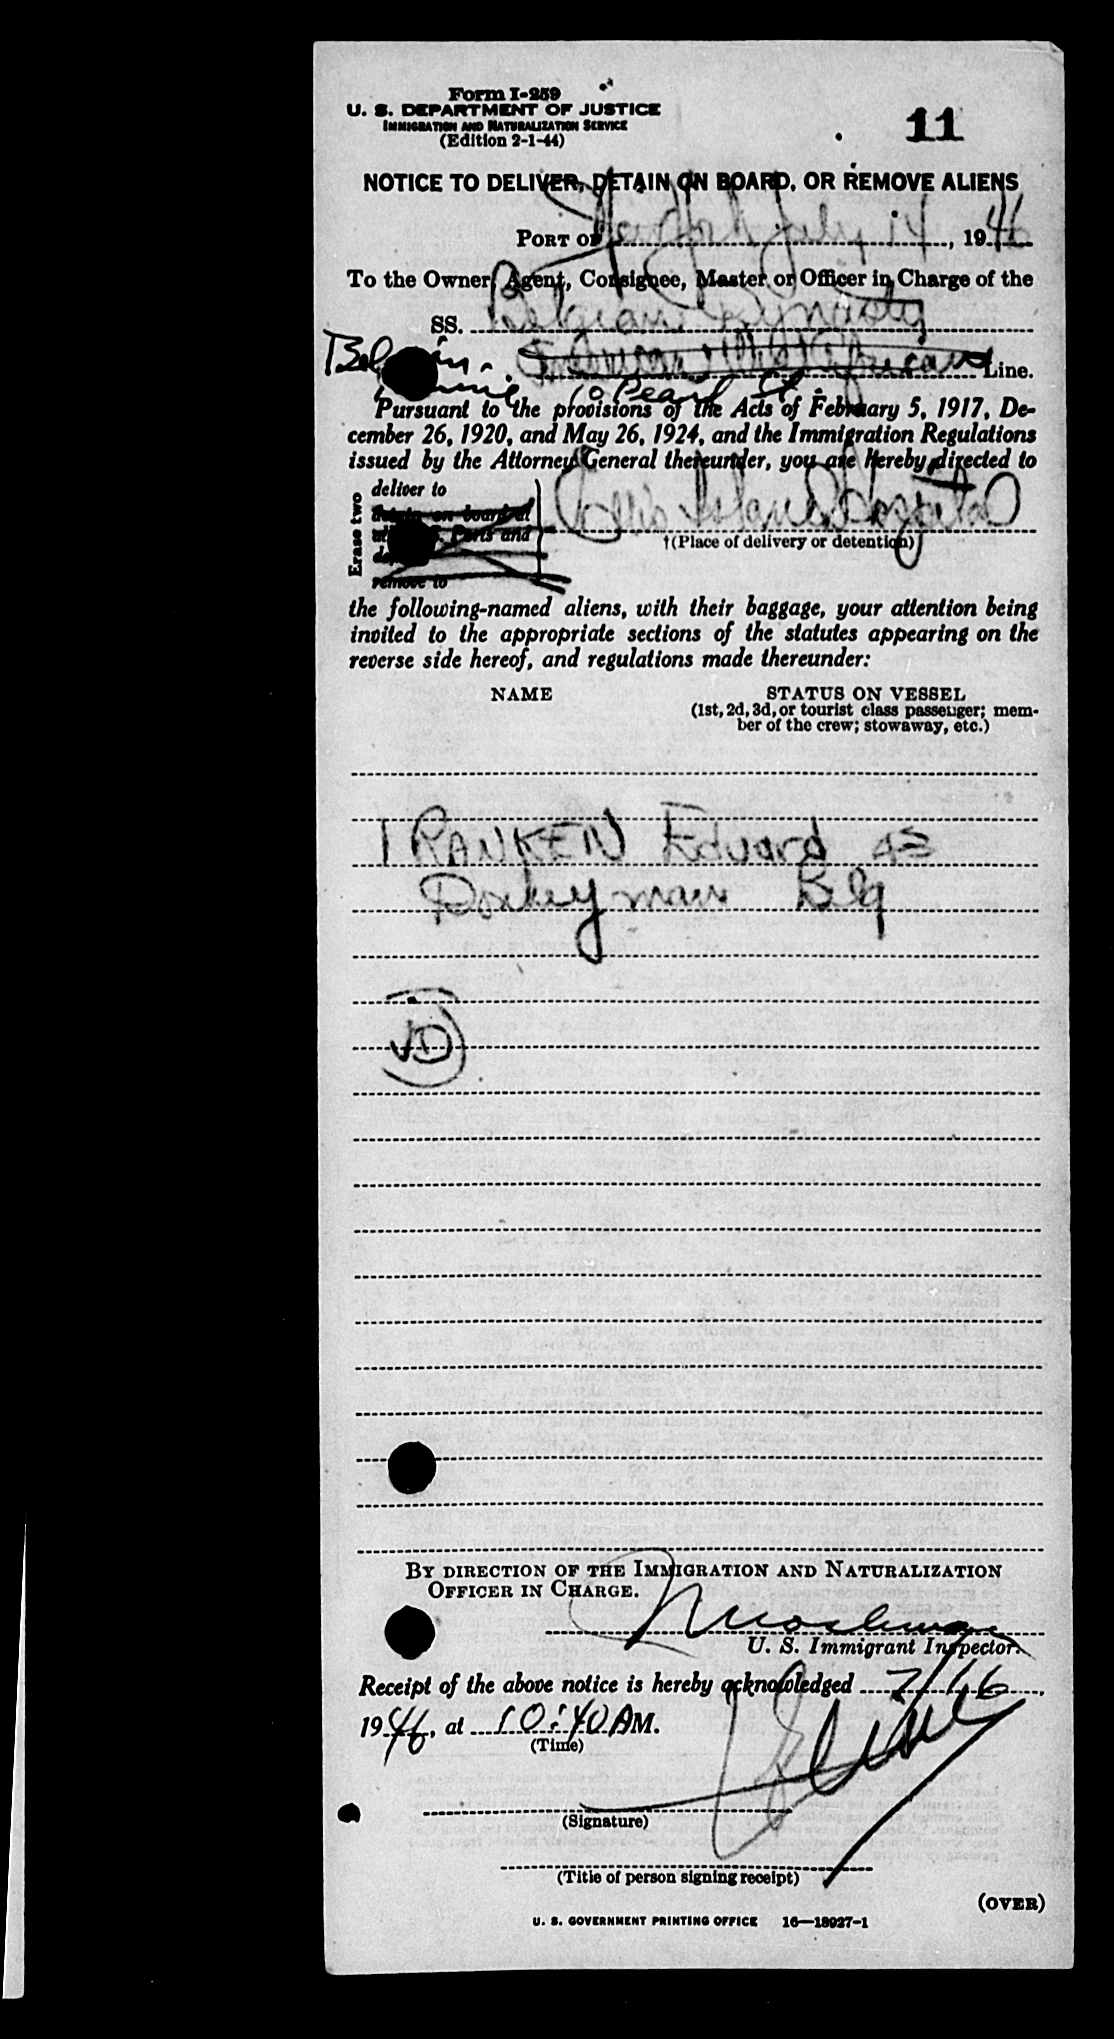 Form I-259
U. S. DEPARTMENT OF JUSTICE
IMMIGRATION AND NATURALIZATION SERVICE
(Edition 2-1-44)
11
NOTICE TO DELIVER, DETAIN ON BOARD, OR REMOVE ALIENS
PORT OF New York July 14, 1946
To the Owner, Agent, Consignee, Master or Officer in Charge of the
SS. Belgian Dynasty
American West African Line.
10 Pearl St.
Pursuant to the provisions of the Acts of February 5, 1917, De-
cember 26, 1920, and May 26, 1924, and the Immigration Regulations
issued by the Attorney General thereunder, you are hereby directed to
Erase two
deliver to
detain on board at
all U. S. Ports and
remove to
Ellis Island Hospital
†(Place of delivery or detention)
the following-named aliens, with their baggage, your attention being
invited to the appropriate sections of the statutes appearing on the
reverse side hereof, and regulations made thereunder:
NAME
STATUS ON VESSEL
(1st, 2d, 3d, or tourist class passenger; mem-
ber of the crew; stowaway, etc.)
1 RANKEN Eduard 43
Donkeyman Blg
VD
BY DIRECTION OF THE IMMIGRATION AND NATURALIZATION
OFFICER IN CHARGE.
U. S. Immigrant Inspector.
Receipt of the above notice is hereby acknowledged 7/16,
1946, at 10:40 AM.
(Time)
(Signature)
(Title of person signing receipt)
(OVER)
U. S. GOVERNMENT PRINTING OFFICE 16—18927-1